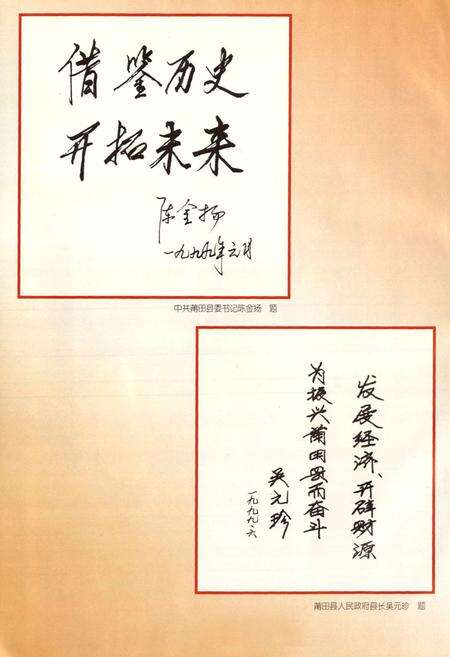 借鉴历史
开拓未来
陈金扬
一九九九年元月
中共莆田县委书记陈金扬 题
发展经济、开辟财源
为振兴莆田县而奋斗
吴元珍
一九九九·六
莆田县人民政府县长吴元珍 题